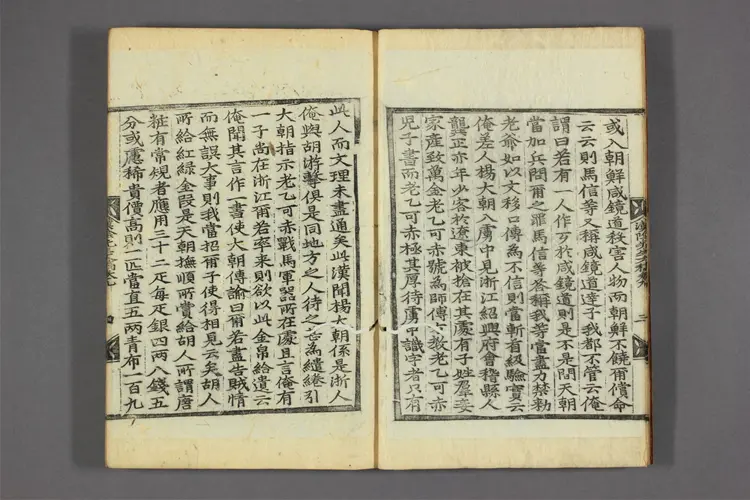 或入朝鮮咸鏡道殺害人物而朝鮮不饒爾償命
云云則馬信等又稱咸鏡道㺚子我都不管云俺
謂曰若有一人作歹於咸鏡道則是不是問天朝
當加兵問爾之罪馬信等答稱我等當盡力禁勑
老爺如以文移口傳為不信則當斬首級驗實云
俺差人楊大朝入虜中見浙江紹興府會稽縣人
龔正六年少客於遼東被搶在其處有子姓羣妾
家產致萬金老乙可赤號為師傅方教老乙可赤
兒子書而老乙可赤極其厚待虜中識字者只有
三
此人而文理未盡通矣此漢聞楊大朝係是浙人
俺與胡游擊俱是同地方之人待之甚為繾綣引
大朝指示老乙可赤戰馬軍器所在處且言俺有
一子尚在浙江爾若率來則欲以此金帛給遺云
俺聞其言作一書使大朝傳諭曰爾若盡告賊情
而無誤大事則我當招爾子使得相見云矣胡人
所給紅綠金段是天朝撫順所賞給胡人所謂唐
粧有常規者應用三十二疋每疋銀四兩八錢五
分或慮稀貴價高則一疋當直五兩青布一百九
四